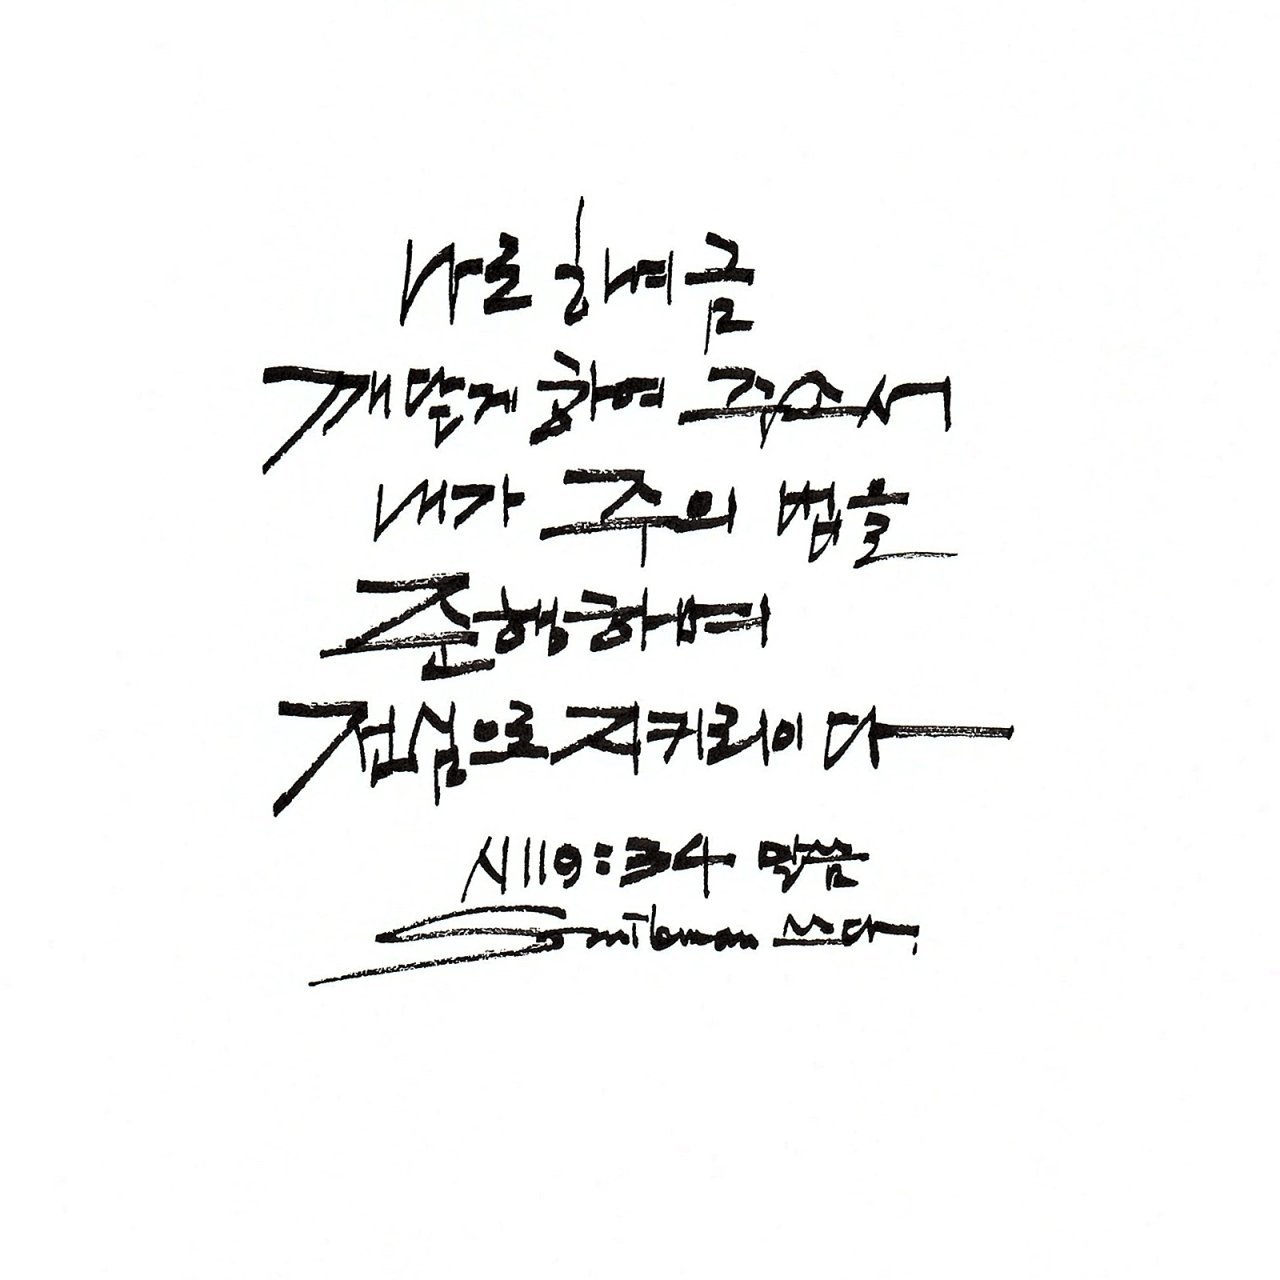 나로 하여금
깨닫게 하여 주소서
내가 주의 법을
준행하며
전심으로 지키리이다
시119:34 말씀
쓰다